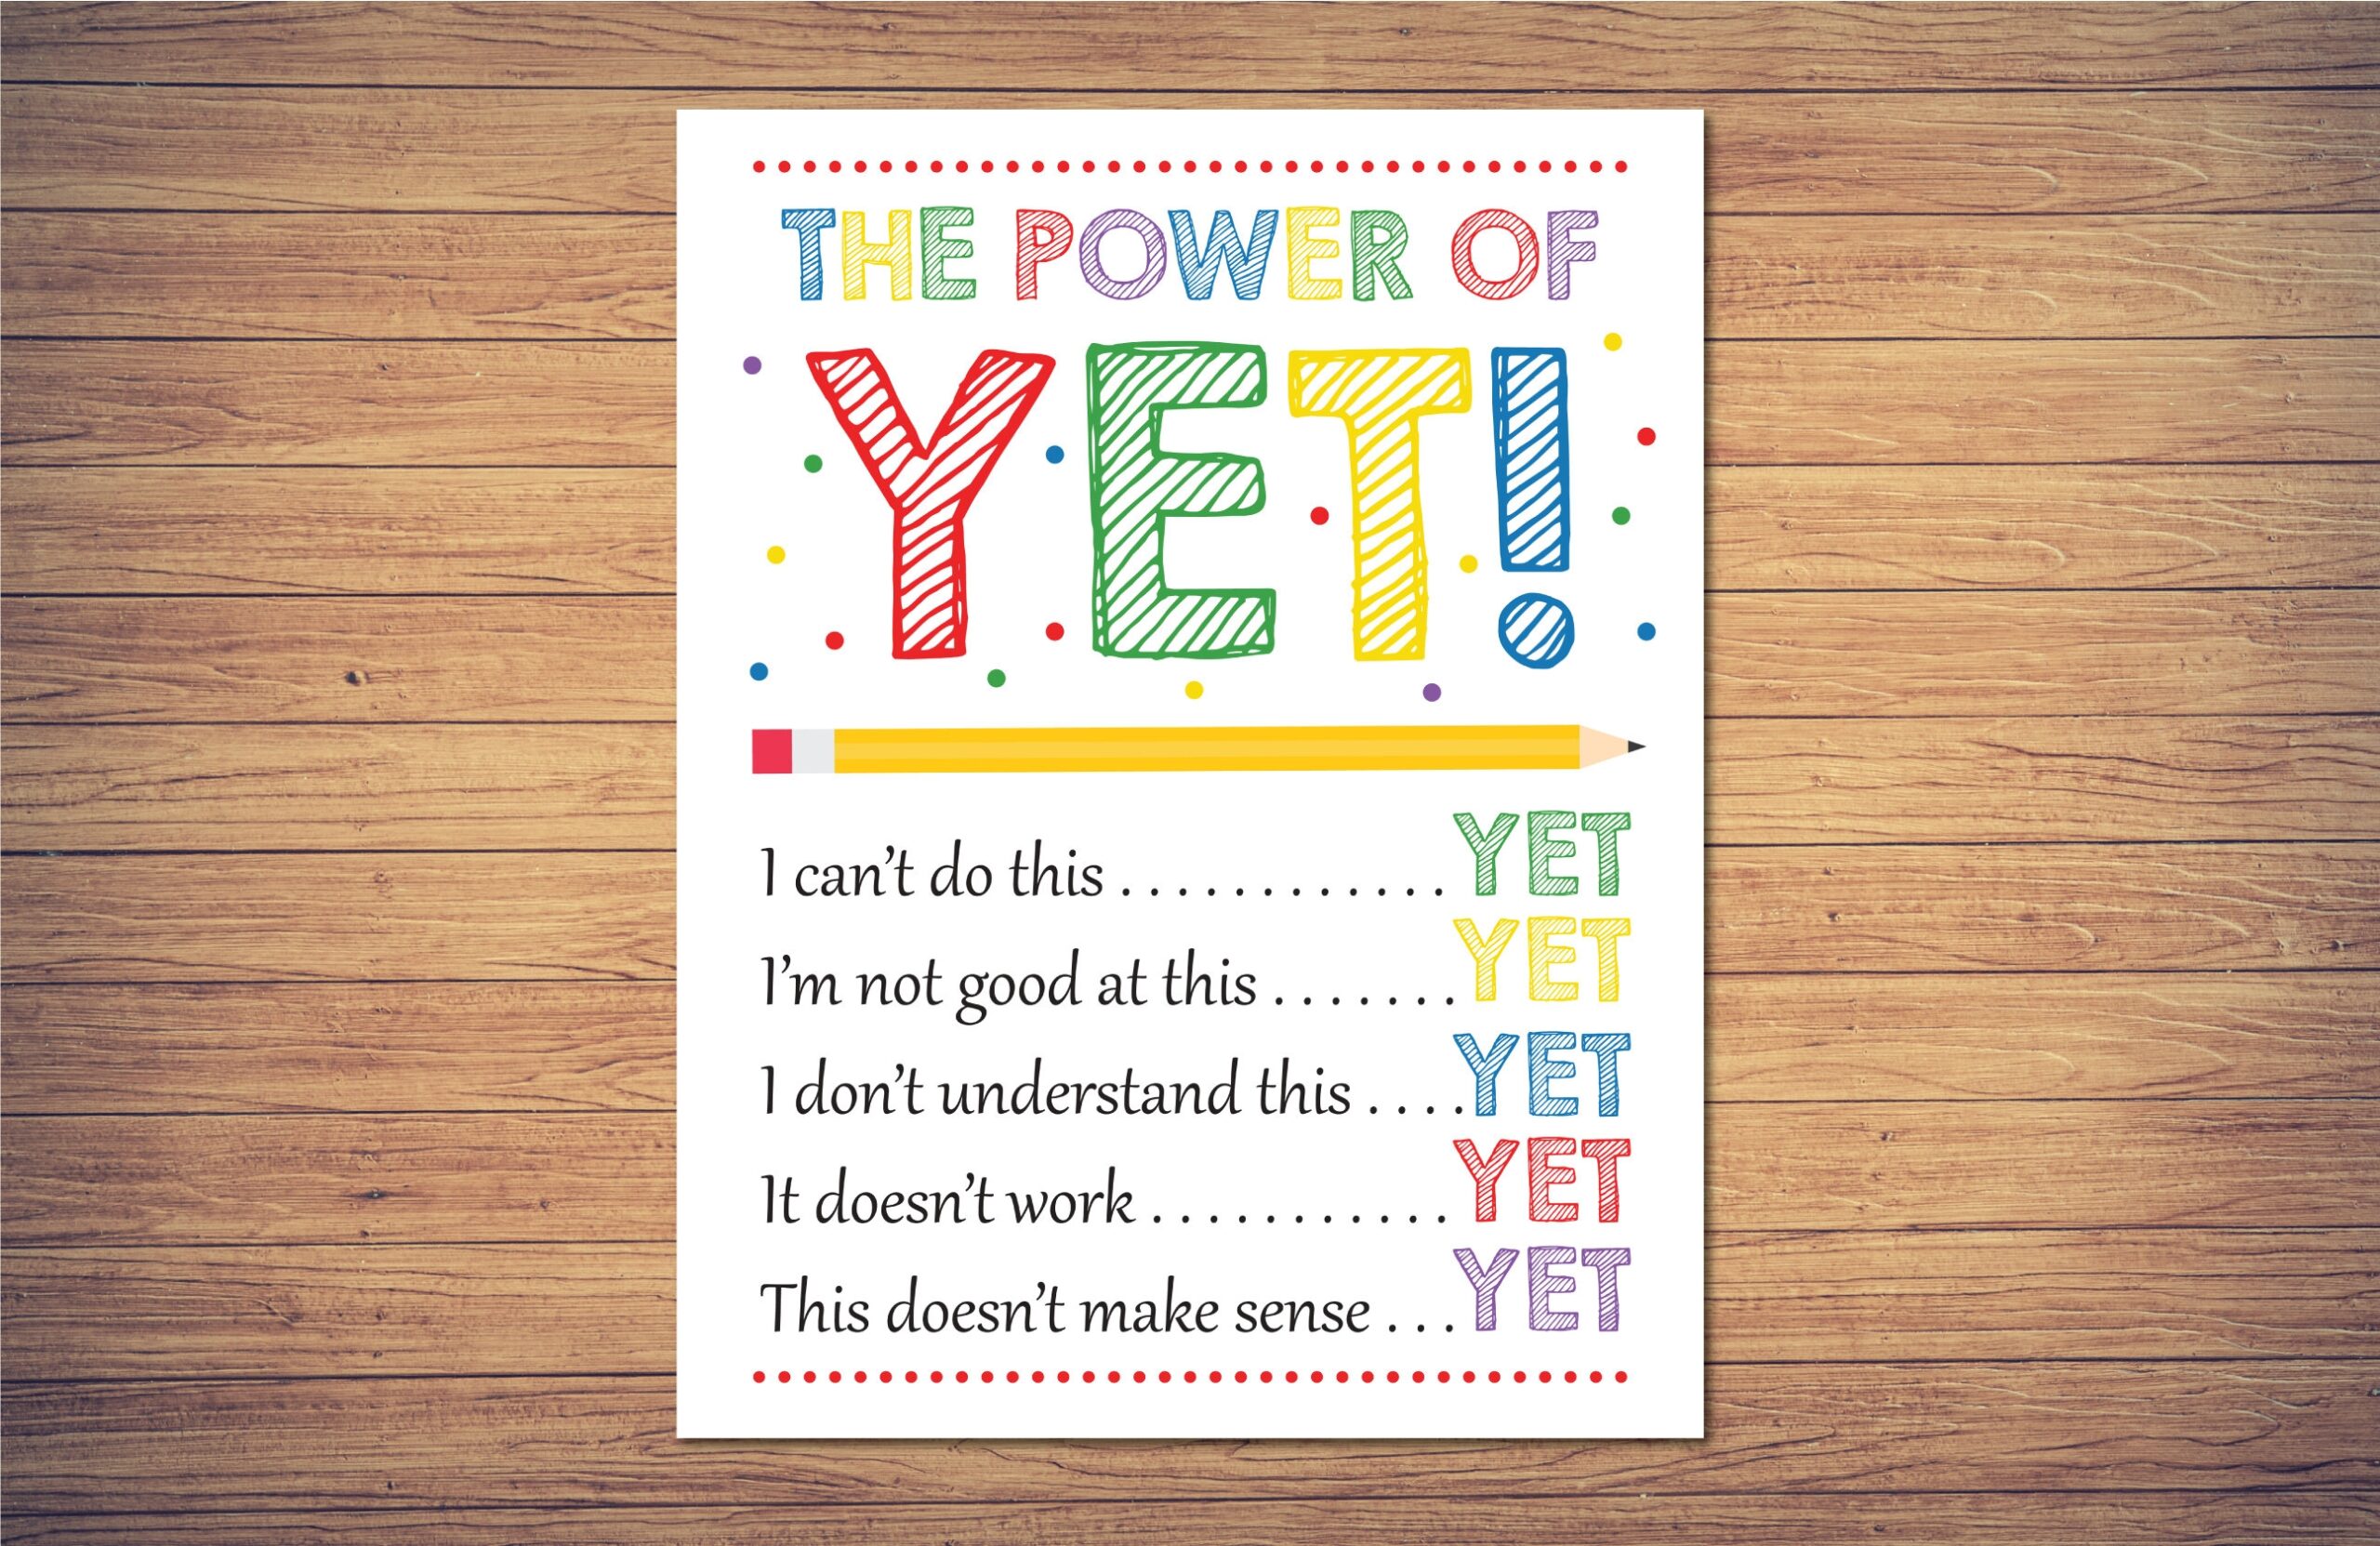 THE POWER OF
YET!
I can't do this . . . . . . . . . . . . YET
I'm not good at this . . . . . . . YET
I don't understand this . . . . YET
It doesn't work . . . . . . . . . . . YET
This doesn't make sense . . . YET